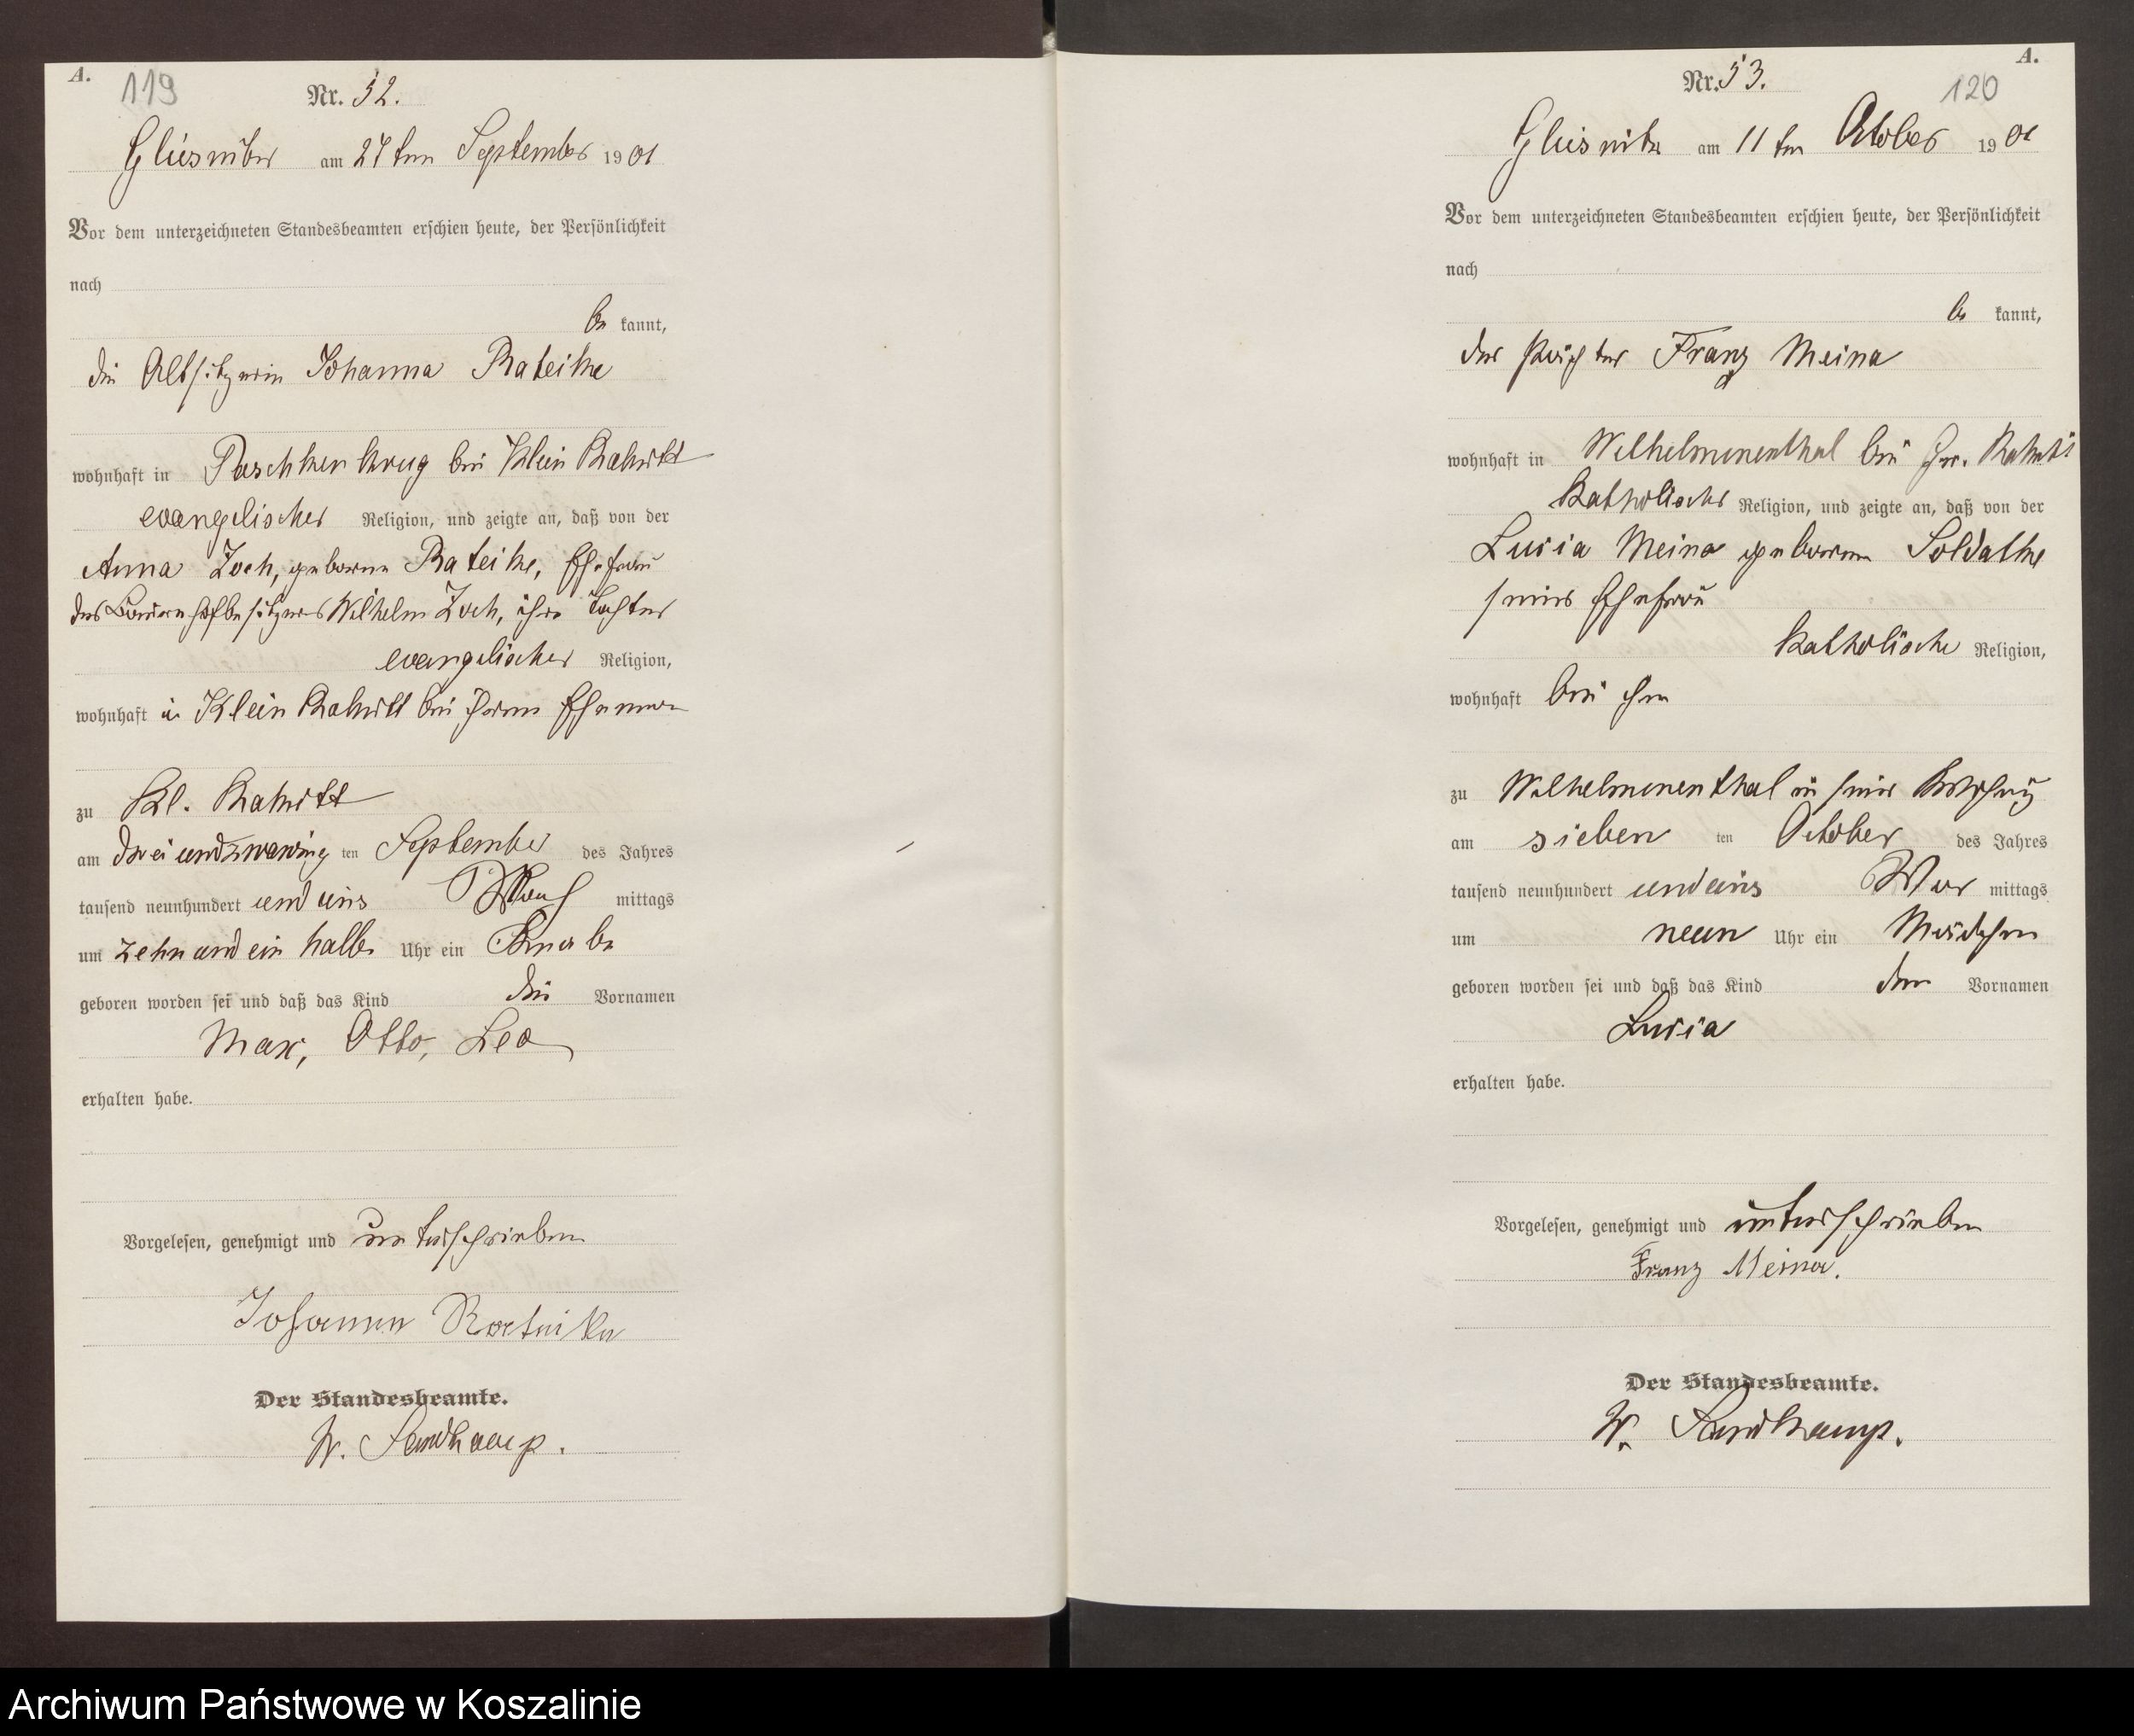 A.
119
Nr. 52.
Gluśnitz am 27ten September 1901
Vor dem unterzeichneten Standesbeamten erschien heute, der Persönlichkeit
nach
be kannt,
die Altsitzerin Johanna Rateike
wohnhaft in Paschkenkrug bei Klein Rakitt
evangelischer Religion, und zeigte an, daß von der
Anna Zoch, geborene Rateike, Ehefrau
des Bauernhofbesitzers Wilhelm Zoch, ihre Tochter
evangelischer Religion,
wohnhaft in Klein Rakitt bei ihrem Ehemann
zu Kl. Rakitt
am dreiundzwanzig ten September des Jahres
tausend neunhundert und eins Nach mittags
um zehn und ein halb Uhr ein Knabe
geboren worden sei und daß das Kind die Vornamen
Max, Otto, Leo
erhalten habe.
Vorgelesen, genehmigt und unterschrieben
Johanna Rateike
Der Standesbeamte.
W. Sandkamp.
A.
Nr. 53.
120
Glusnitz am 11ten October 1901
Vor dem unterzeichneten Standesbeamten erschien heute, der Persönlichkeit
nach
be kannt,
der Pächter Franz Meina
wohnhaft in Wilhelminenthal bei Gr. Rakitt
katholischer Religion, und zeigte an, daß von der
Lucia Meina geborene Soldatke
seiner Ehefrau
katholische Religion,
wohnhaft bei ihm
zu Wilhelminenthal in seiner Wohnung
am sieben ten October des Jahres
tausend neunhundert und eins Vor mittags
um neun Uhr ein Mädchen
geboren worden sei und daß das Kind den Vornamen
Lucia
erhalten habe.
Vorgelesen, genehmigt und unterschrieben
Franz Meina.
Der Standesbeamte.
W. Sandkamp.
Archiwum Państwowe w Koszalinie